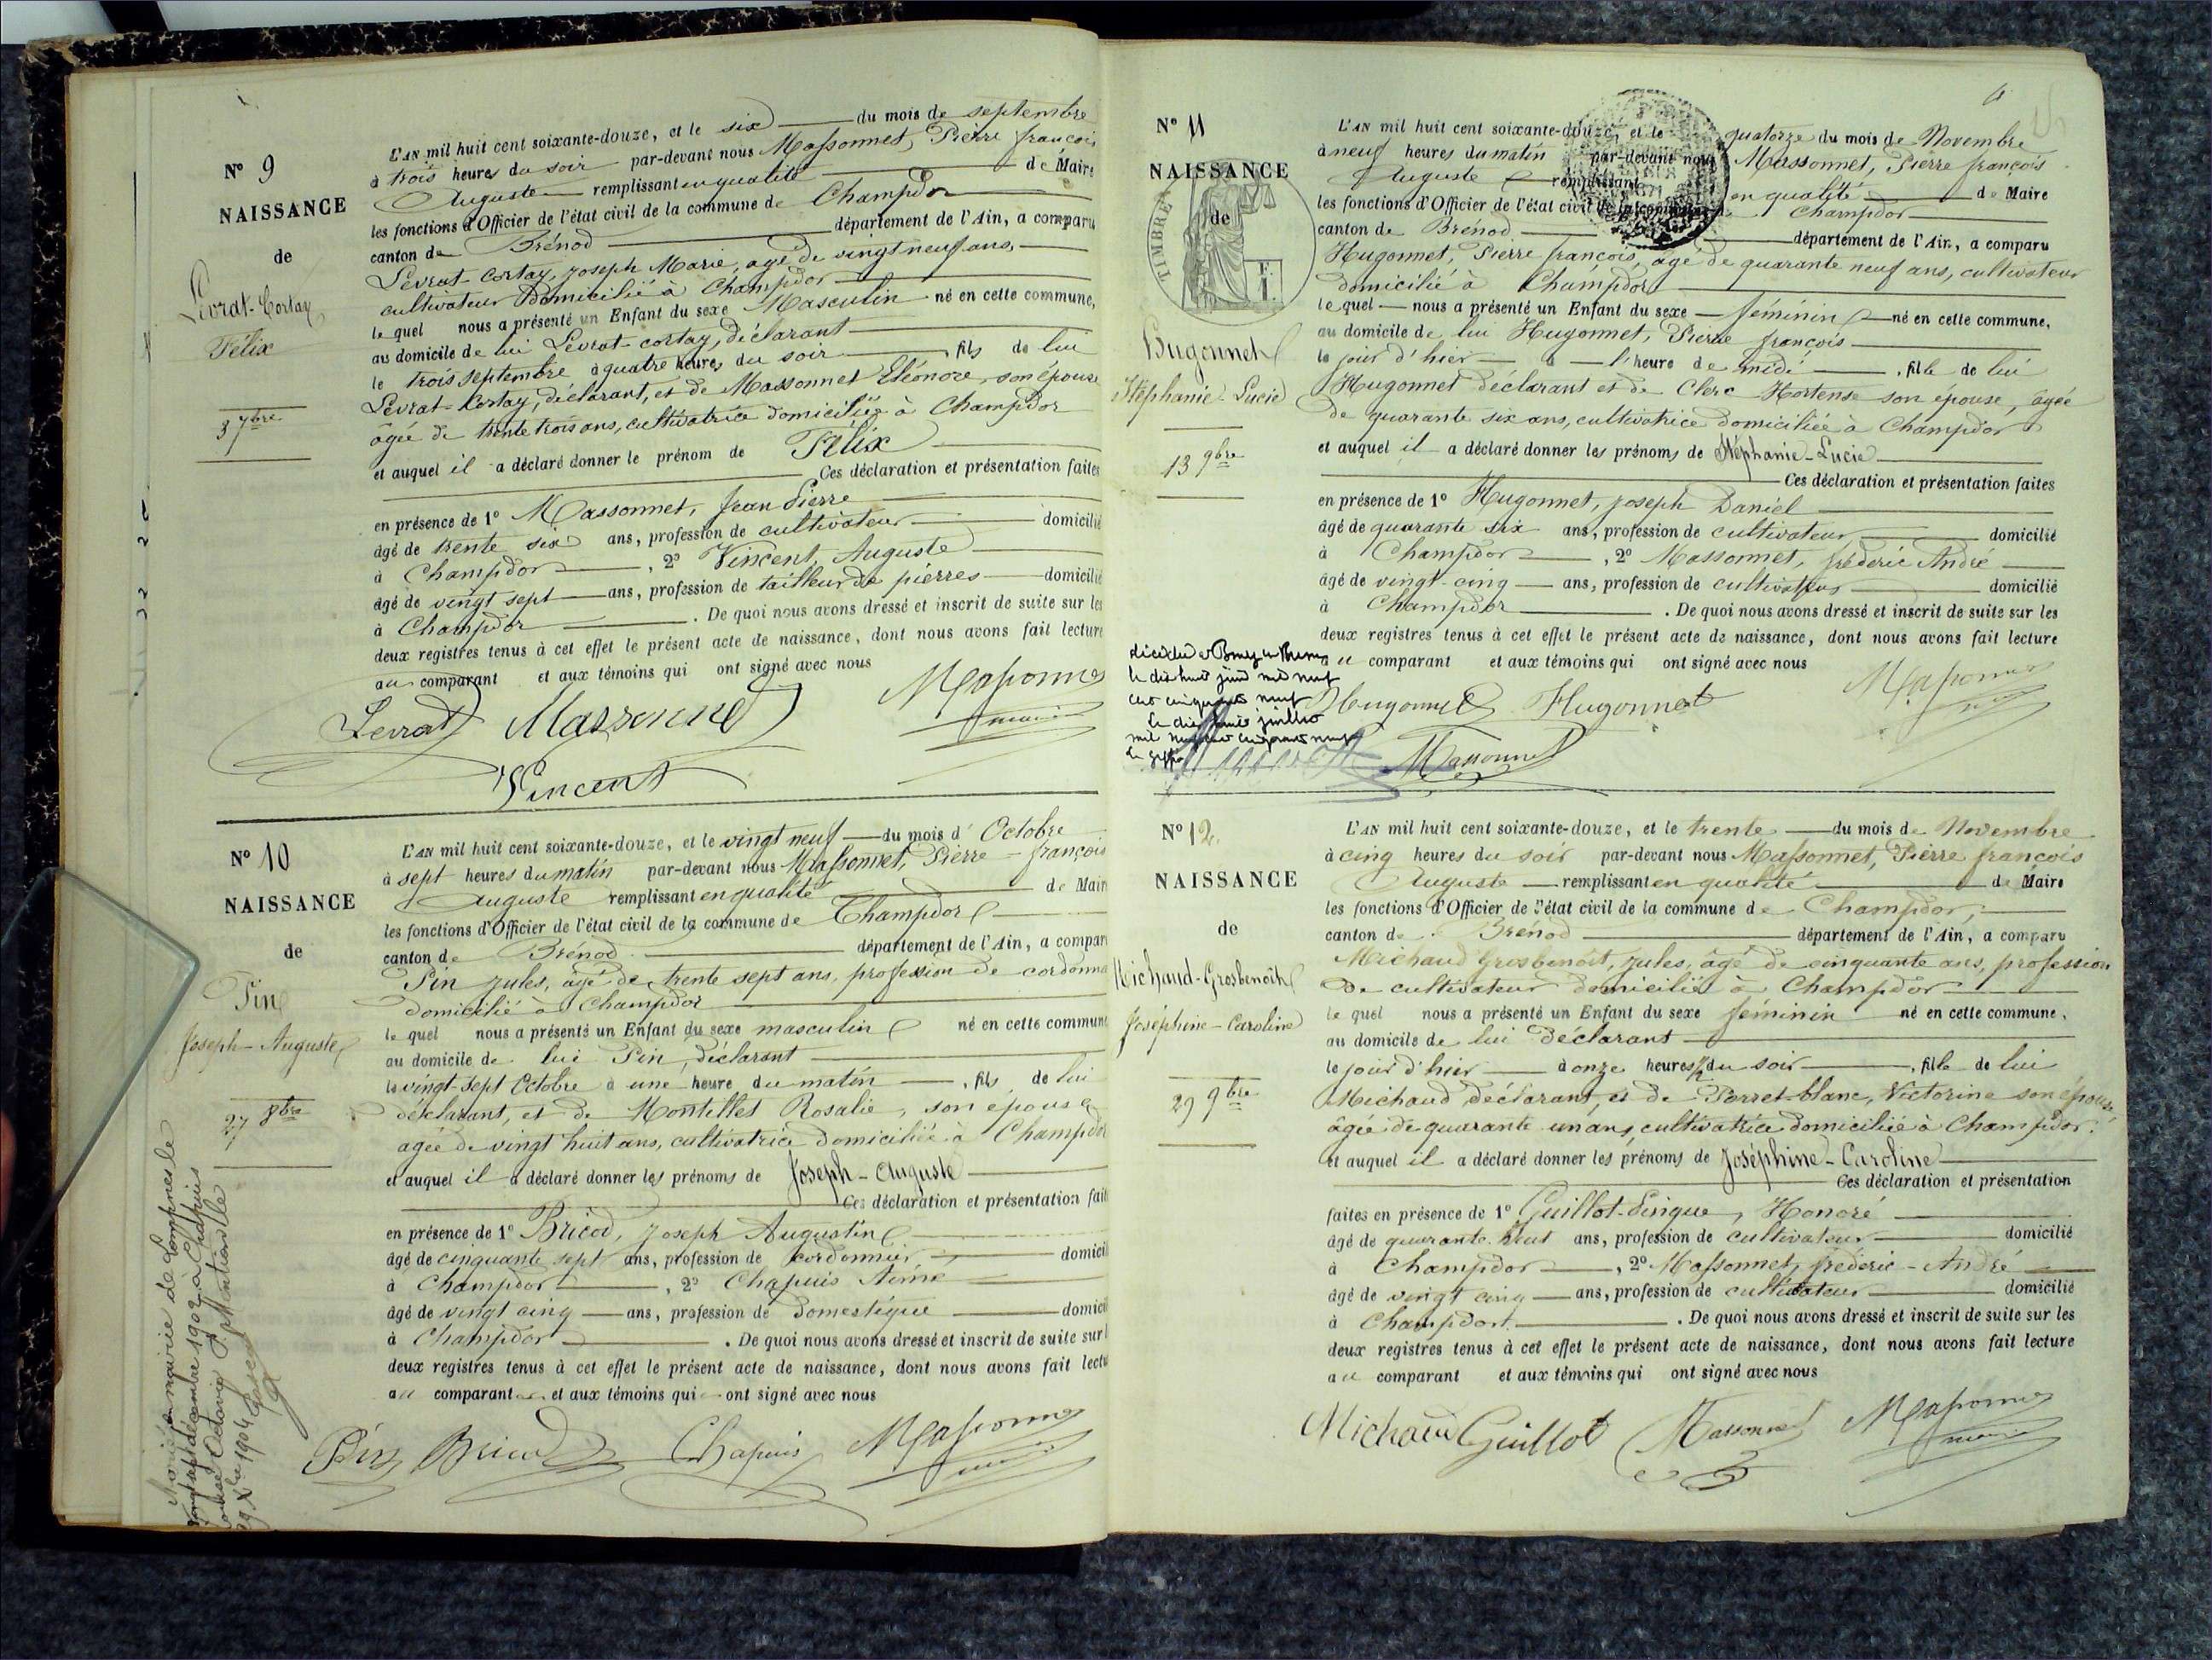 Nº 9
NAISSANCE
de
Levrat-Cortay
Félix
3 7bre
L'AN mil huit cent soixante-douze, et le six du mois de septembre
à trois heures du soir par-devant nous Massonnet, Pierre françois
Auguste remplissant en qualité de Maire
les fonctions d'Officier de l'état civil de la commune de Champdor
canton de Brénod département de l'Ain, a comparu
Levrat-Cortay, Joseph Marie, agé de vingt neuf ans,
cultivateur domicilié à Champdor
le quel nous a présenté un Enfant du sexe Masculin né en cette commune,
au domicile de lui Levrat-cortay, déclarant
le trois septembre à quatre heures du soir , fils de lui
Levrat-Cortay, déclarant, et de Massonnet Eléonore, son épouse
âgée de trente trois ans, cultivatrice domiciliée à Champdor
et auquel il a déclaré donner le prénom de Félix
Ces déclaration et présentation faites
en présence de 1º Massonnet, Jean Pierre
âgé de trente six ans, profession de cultivateur domicilié
à Champdor , 2º Vincent, Auguste
âgé de vingt sept ans, profession de tailleur de pierres domicilié
à Champdor . De quoi nous avons dressé et inscrit de suite sur les
deux registres tenus à cet effet le présent acte de naissance, dont nous avons fait lecture
au comparant et aux témoins qui ont signé avec nous
Levrat Massonnet Massonnet
maire
Vincent
Nº 10
NAISSANCE
de
Pin
Joseph-Auguste
27 8bre
L'AN mil huit cent soixante-douze, et le vingt neuf du mois d' Octobre
à sept heures du matin par-devant nous Massonnet, Pierre-françois
Auguste remplissant en qualité de Mair
les fonctions d'Officier de l'état civil de la commune de Champdor
canton de Brénod département de l'Ain, a compar
Pin Jules, âgé de trente sept ans, profession de cordonn
domicilié à Champdor
le quel nous a présenté un Enfant du sexe masculin né en cette commune
au domicile de lui Pin, déclarant
le vingt-sept Octobre à une heure du matin , fils de lui
déclarant, et de Montillet Rosalie, son épouse
agée de vingt huit ans, cultivatrice domiciliée à Champdor
et auquel il a déclaré donner les prénoms de Joseph-Auguste
Ces déclaration et présentation fait
en présence de 1º Bricod, Joseph Augustin
âgé de cinquante sept ans, profession de cordonnier domicil
à Champdor , 2º Chapuis Aimé
âgé de vingt cinq ans, profession de domestique domicil
à Champdor . De quoi nous avons dressé et inscrit de suite sur l
deux registres tenus à cet effet le présent acte de naissance, dont nous avons fait lectu
au comparant et aux témoins qui ont signé avec nous
Pin Bricod Chapuis Massonnet
maire
Marié en mairie de Lompnes le
vingt sept décembre 1902 à Chapuis
Louise Octavie P. Mention le
29 Xbre 1904
Nº 11
NAISSANCE
de
TIMBRE
Hugonnet
Stéphanie-Lucie
13 9bre
L'AN mil huit cent soixante-douze, et le quatorze du mois de Novembre
à neuf heures du matin par-devant nous Massonnet, Pierre françois
Auguste remplissant en qualité de Maire
les fonctions d'Officier de l'état civil de la commune de Champdor
canton de Brénod département de l'Ain, a comparu
Hugonnet, Pierre françois, âgé de quarante neuf ans, cultivateur
domicilié à Champdor
le quel nous a présenté un Enfant du sexe féminin né en cette commune,
au domicile de lui Hugonnet, Pierre françois
le jour d'hier à l'heure de midi , fille de lui
Hugonnet déclarant et de Clerc Hortense son épouse, âgée
de quarante six ans, cultivatrice domiciliée à Champdor
et auquel il a déclaré donner les prénoms de Stéphanie-Lucie
Ces déclaration et présentation faites
en présence de 1º Hugonnet, Joseph Daniel
âgé de quarante six ans, profession de cultivateur domicilié
à Champdor , 2º Massonnet, fréderic André
âgé de vingt-cinq ans, profession de cultivateur domicilié
à Champdor . De quoi nous avons dressé et inscrit de suite sur les
deux registres tenus à cet effet le présent acte de naissance, dont nous avons fait lecture
au comparant et aux témoins qui ont signé avec nous
Hugonnet Hugonnet Massonnet
Massonnet
décédée à Bourg en Bresse
le dix huit juin mil neuf
cent cinquante neuf
Le dix huit juillet
mil neuf cent cinquante neuf
Nº 12
NAISSANCE
de
Michaud-Grosbenoit
Joséphine-Caroline
29 9bre
L'AN mil huit cent soixante-douze, et le trente du mois de Novembre
à cinq heures du soir par-devant nous Massonnet, Pierre françois
Auguste remplissant en qualité de Maire
les fonctions d'Officier de l'état civil de la commune de Champdor,
canton de Brénod département de l'Ain, a comparu
Michaud Grosbenoit, Jules, âgé de cinquante ans, profession
de cultivateur domicilié à Champdor
le quel nous a présenté un Enfant du sexe féminin né en cette commune,
au domicile de lui déclarant
le jour d'hier à onze heures ½ du soir , fille de lui
Michaud déclarant, et de Perret-blanc, Victorine son épouse,
âgée de quarante un ans, cultivatrice domiciliée à Champdor.
et auquel il a déclaré donner les prénoms de Joséphine-Caroline
Ces déclaration et présentation
faites en présence de 1º Guillot-Pingue, Honoré
âgé de quarante huit ans, profession de cultivateur domicilié
à Champdor , 2º Massonnet, fréderic-André
âgé de vingt cinq ans, profession de cultivateur domicilié
à Champdor. . De quoi nous avons dressé et inscrit de suite sur les
deux registres tenus à cet effet le présent acte de naissance, dont nous avons fait lecture
au comparant et aux témoins qui ont signé avec nous
Michaud Guillot Massonnet Massonnet
maire